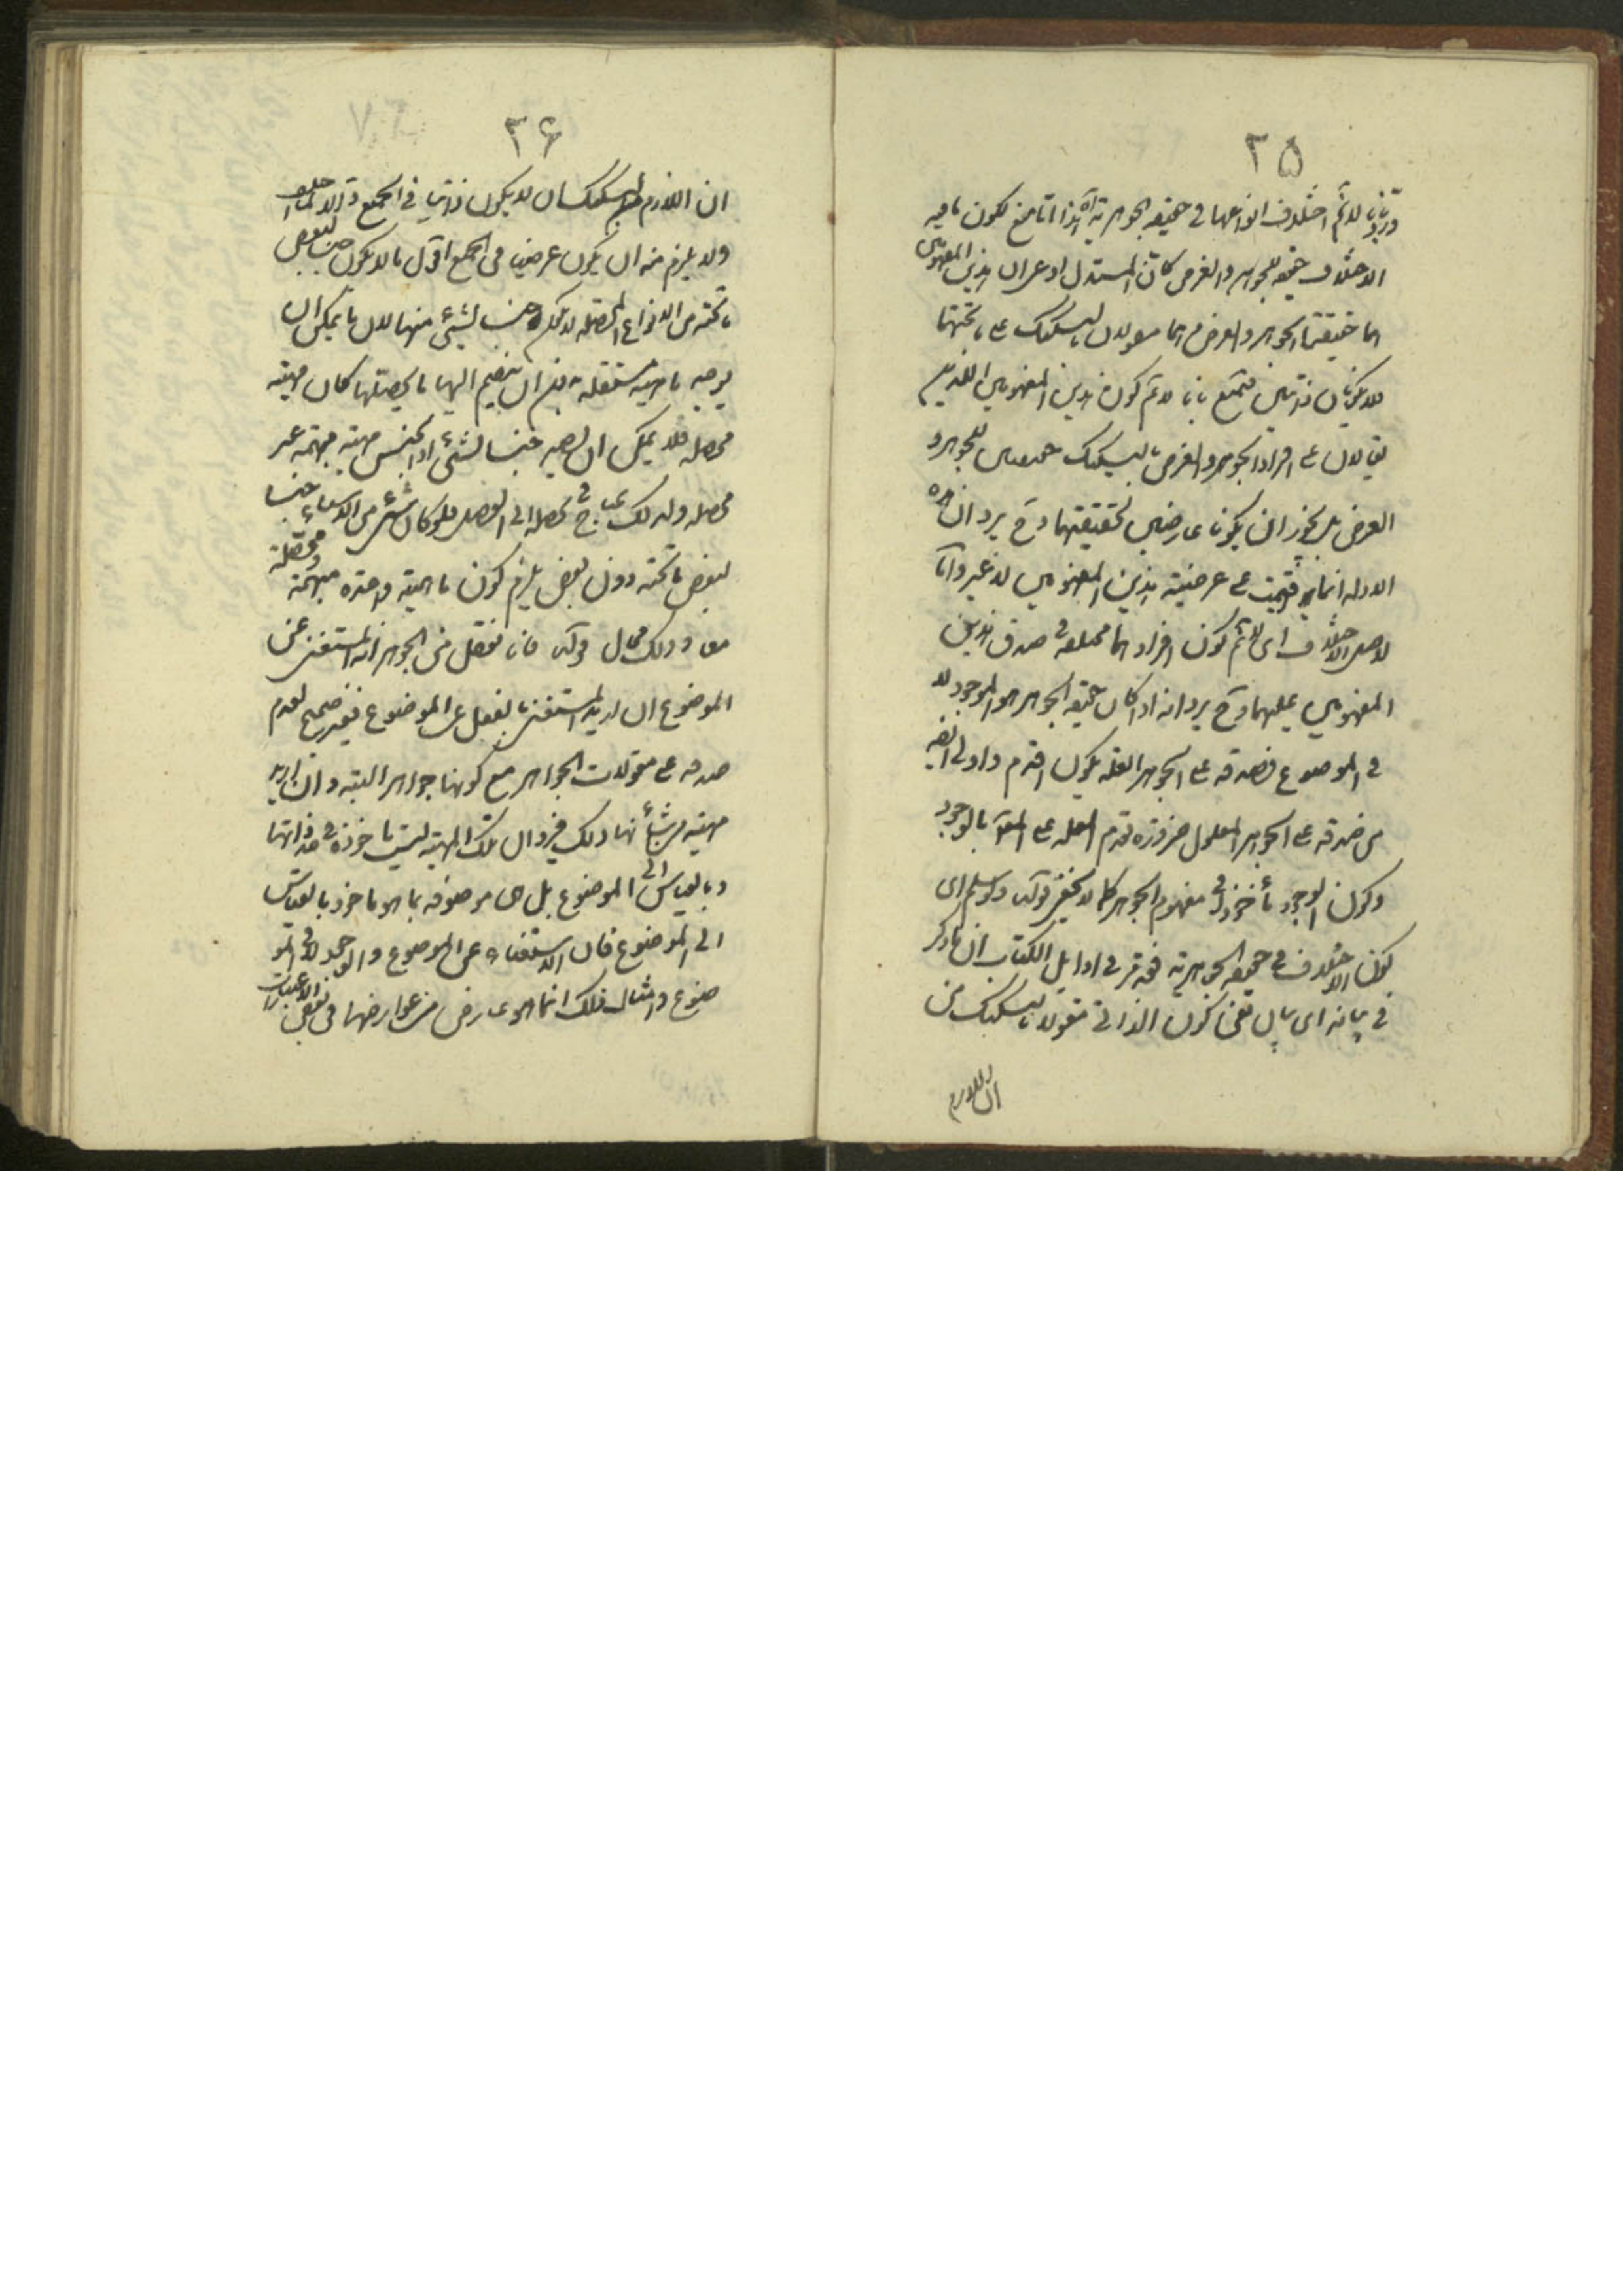 ٢٥
لانم اختلاف انواعها في حقيقة الجوهرية اه هذا انما منع لكون ما فيه
الاختلاف حقيقة للجوهر والعرض كان المستدل ادعى ان هذين المفهومين
هما حقيقتا الجوهر والعرض وهما مقولان بالتشكيك على ما تحتهما
فلا يكونان ذاتيين فتمنع بانا لانم كون هذين المفهومين اللذين
يقالان على افراد الجوهر والعرض بالتشكيك حقيقتين للجوهر و
العرض بل يجوز ان يكونا عارضين لحقيقتهما وح يرد ان هذه
الادلة انما اقيمت على عرضية هذين المفهومين لا غير واما
لاصل الاختلاف اى لانم كون افرادهما مختلفة في صدق هذين
المفهومين عليهما وح يرد انه اذا كان حقيقة الجوهر هو الموجود لا
في الموضوع فصدقه على الجوهر العلة يكون اقدم واولى
من صدقه على الجوهر المعلول ضرورة تقدم العلة على المعلول بالوجود
وكون الوجود مأخوذا في مفهوم الجوهر كما لا يخفى قوله ولو سلم اى
كون الاختلاف في حقيقة الجوهرية فقد مر في اوايل الكتاب ان ما ذكر
في بيانه اى بيان نفى كون الذاتي مقولا بالتشكيك من
ان اللازم
٣٦
ان اللازم من التشكيك ان لا يكون ذاتيا في الجميع
ولا يلزم منه ان يكون عرضيا في الجميع اقول ما لا يكون جنسا لبعض
ما تحته من الانواع المحصلة لا يكون جنسا لشىء منها لان ما يمكن ان
يوجد ماهية مستقلة بدون ان ينضم اليها ما يحصلها كان مهية
محصلة فلا يمكن ان يصير جنسا لشىء اذ الجنس مهية مبهمة غير
محصلة ولذلك يحتاج في تحصله الى الفصل فلو كان شىء من الاشياء جنسا
لبعض ما تحته دون بعض يلزم كون ماهية واحدة مبهمة ومحصلة
معا وذلك محال قوله فانا نعقل من الجوهر انه المستغنى عن
الموضوع ان اريد المستغنى بالفعل عن الموضوع فغير صحيح لعدم
صدقه على مقولات الجواهر مع كونها جواهر البتة وان اريد
مهية من شأنها ذلك فيرد ان تلك المهية ليست مأخوذة في حد ذاتها
وبالقياس الى الموضوع بل هى موصوفة بما هو مأخوذ بالقياس
الى الموضوع فان الاستغناء عن الموضوع والوجود لا في المو
ضوع وامثال ذلك انما هو عارض من عوارضها في بعض الاعتبارات